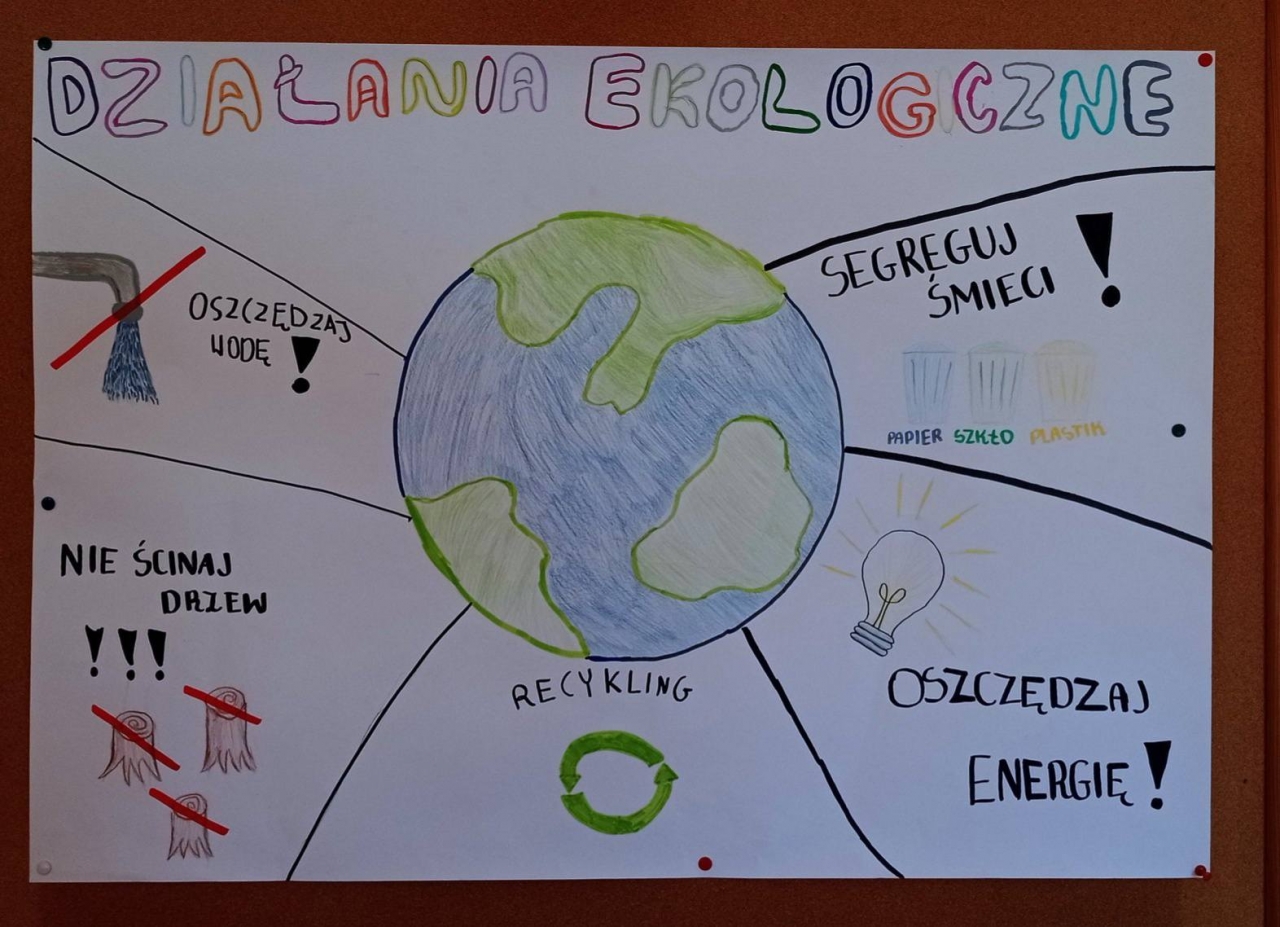 DZIAŁANIA EKOLOGICZNE
OSZCZĘDZAJ
WODĘ !
SEGRĘGUJ
ŚMIECI !
PAPIER SZKŁO PLASTIK
NIE ŚCINAJ
DRZEW
!!!
RECYKLING
OSZCZĘDZAJ
ENERGIĘ !